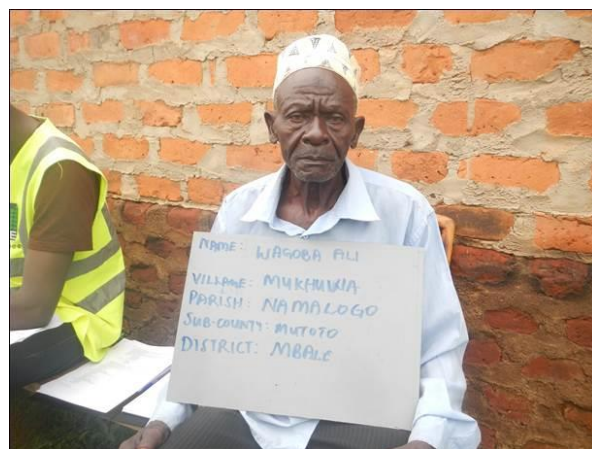 NAME: WAGOBA ALI
VILLAGE: MUKHUWA
PARISH: NAMALOGO
SUB-COUNTY: MUTOTO
DISTRICT: MBALE